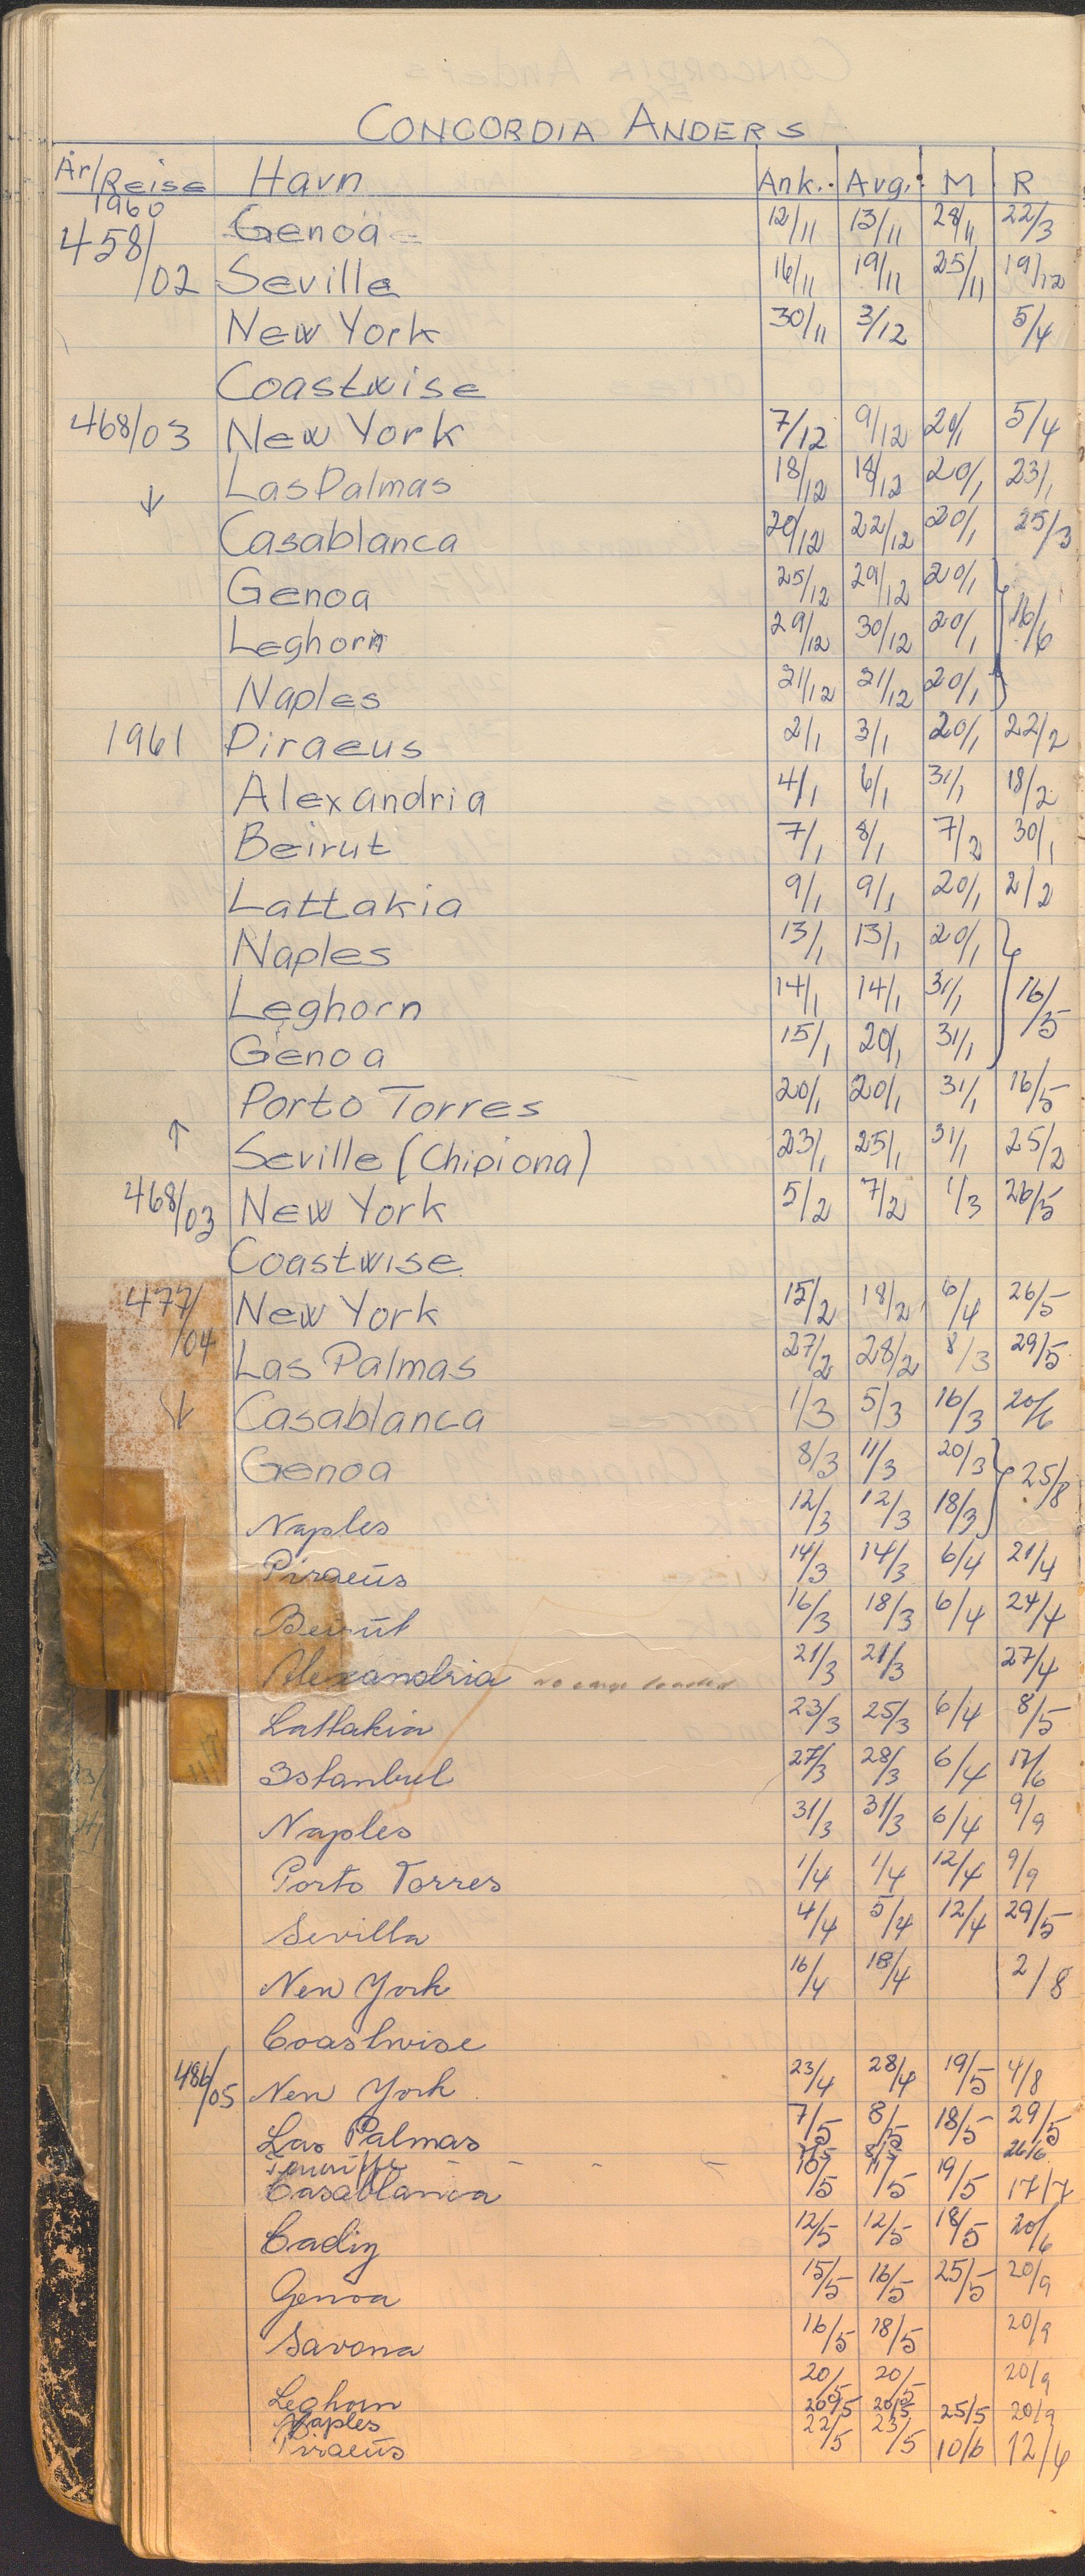 CONCORDIA ANDERS
År/Reise Havn Ank. Avg. M R
1960
458/02 Genoa 12/11 13/11 28/11 22/3
Seville 16/11 19/11 25/11 19/12
New York 30/11 3/12 5/4
Coastwise
468/03 New York 7/12 9/12 20/1 5/4
↓ Las Palmas 18/12 18/12 20/1 23/1
Casablanca 20/12 22/12 20/1 25/3
Genoa 25/12 29/12 20/1
Leghorn 29/12 30/12 20/1 16/6
Naples 31/12 31/12 20/1
1961 Piraeus 2/1 3/1 20/1 22/2
Alexandria 4/1 6/1 31/1 18/2
Beirut 7/1 8/1 7/2 30/1
Lattakia 9/1 9/1 20/1 2/2
Naples 13/1 13/1 20/1
Leghorn 14/1 14/1 31/1 16/5
Genoa 15/1 20/1 31/1
Porto Torres 20/1 20/1 31/1 16/5
↑ Seville (Chipiona) 23/1 25/1 31/1 25/2
468/03 New York 5/2 7/2 1/3 26/5
Coastwise
477/04 New York 15/2 18/2 6/4 26/5
Las Palmas 27/2 28/2 8/3 29/5
↓ Casablanca 1/3 5/3 16/3 20/6
Genoa 8/3 11/3 20/3 25/8
Naples 12/3 12/3 18/3
Piraeus 14/3 14/3 6/4 21/4
Beirut 16/3 18/3 6/4 24/4
Alexandria no cargo loaded 21/3 21/3 27/4
Lattakia 23/3 25/3 6/4 8/5
Istanbul 27/3 28/3 6/4 17/6
Naples 31/3 31/3 6/4 9/9
Porto Torres 1/4 1/4 12/4 9/9
Sevilla 4/4 5/4 12/4 29/5
New York 16/4 18/4 2/8
Coastwise
486/05 New York 23/4 28/4 19/5 4/8
Las Palmas 7/5 8/5 18/5 29/5
Teneriffe - - - - 8/5 26/6
Casablanca 10/5 11/5 19/5 17/7
Cadiz 12/5 12/5 18/5 20/6
Genoa 15/5 16/5 25/5 20/9
Savona 16/5 18/5 20/9
Leghorn 20/5 20/5 20/9
Naples 20/5 20/5 25/5 20/9
Piraeus 22/5 23/5 10/6